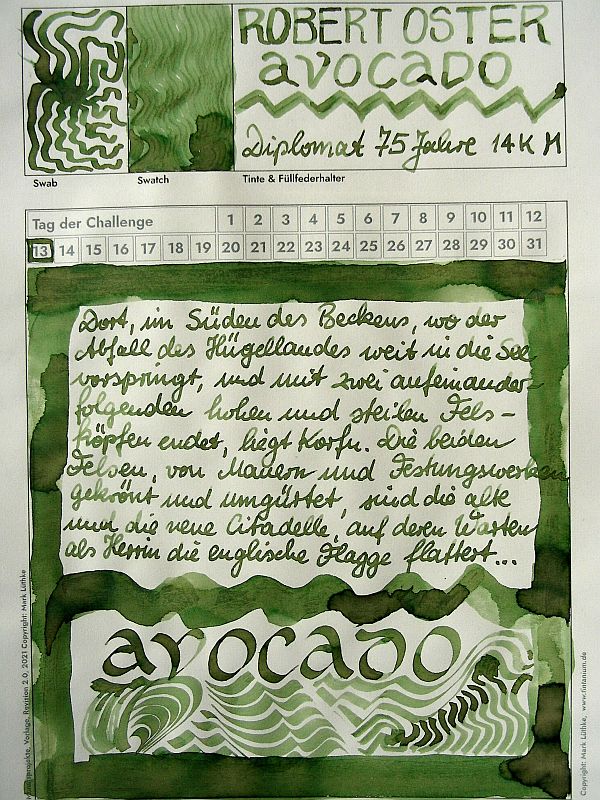 ROBERT OSTER
avocado
Diplomat 75 Jahre 14K M
Swab
Swatch
Tinte & Füllfederhalter
Tag der Challenge 1 2 3 4 5 6 7 8 9 10 11 12
13 14 15 16 17 18 19 20 21 22 23 24 25 26 27 28 29 30 31
Dort, im Süden des Beckens, wo der
Abfall des Hügellandes weit in die See
vorspringt, und mit zwei aufeinander-
folgenden hohen und steilen Fels-
köpfen endet, liegt Korfu. Die beiden
Felsen, von Mauern und Festungswerken
gekrönt und umgürtet, sind die alte
und die neue Citadelle, auf deren Warten
als Herrin die englische Flagge flattert...
avocado
Vorlage, Revision 2.0, 2021 Copyright: Mark Lüthke
Copyright: Mark Lüthke, www.fintanium.de